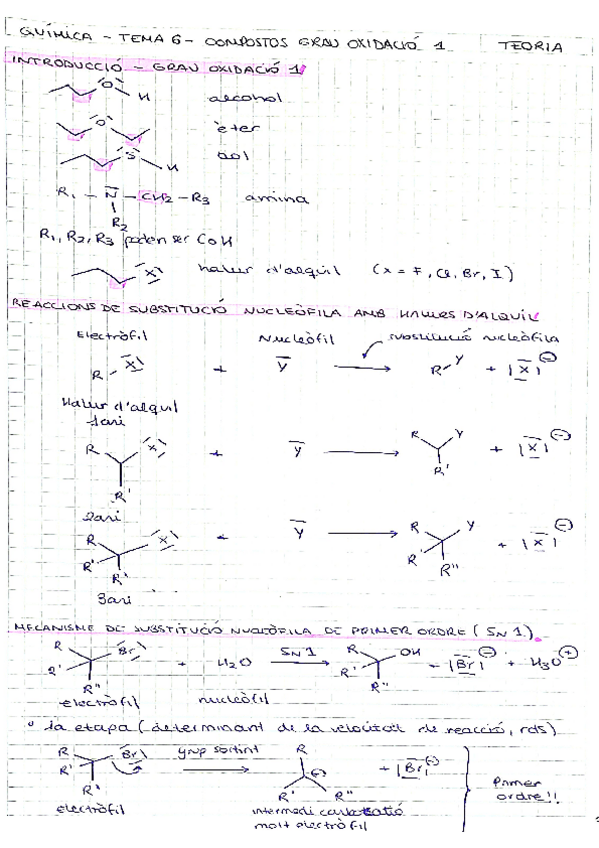 QUÍMICA - TEMA 6 - COMPOSTOS GRAU OXIDACIÓ 1 TEORIA
INTRODUCCIÓ - GRAU OXIDACIÓ 1
O H alcohol
O èter
S H
R1 - N - CH2 - R3 amina
R2
R1, R2, R3 poden ser C o H
X halur d'alquil (X = F, Cl, Br, I)
REACCIONS DE SUBSTITUCIÓ NUCLEÒFILA AMB HALURS D'ALQUIL
Electròfil Nucleòfil substitució nucleòfila
R - X + Y → R - Y + |X|⊖
Halur d'alquil
1ari
R X + Y → R Y + |X|⊖
R' R'
2ari
R X + Y → R Y + |X|⊖
R' R'' R' R''
3ari
MECANISME DE SUBSTITUCIÓ NUCLEÒFILA DE PRIMER ORDRE (SN1).
R Br + H2O SN1 → R OH + |Br|⊖ + H3O⊕
R' R'' R' R''
electròfil nucleòfil
1a etapa (determinant de la velocitat de reacció, rds)
R Br grup sortint → R + |Br|(-)
R' R'' R' R'' Primer ordre!!
electròfil intermedi carbocatió
molt electròfil